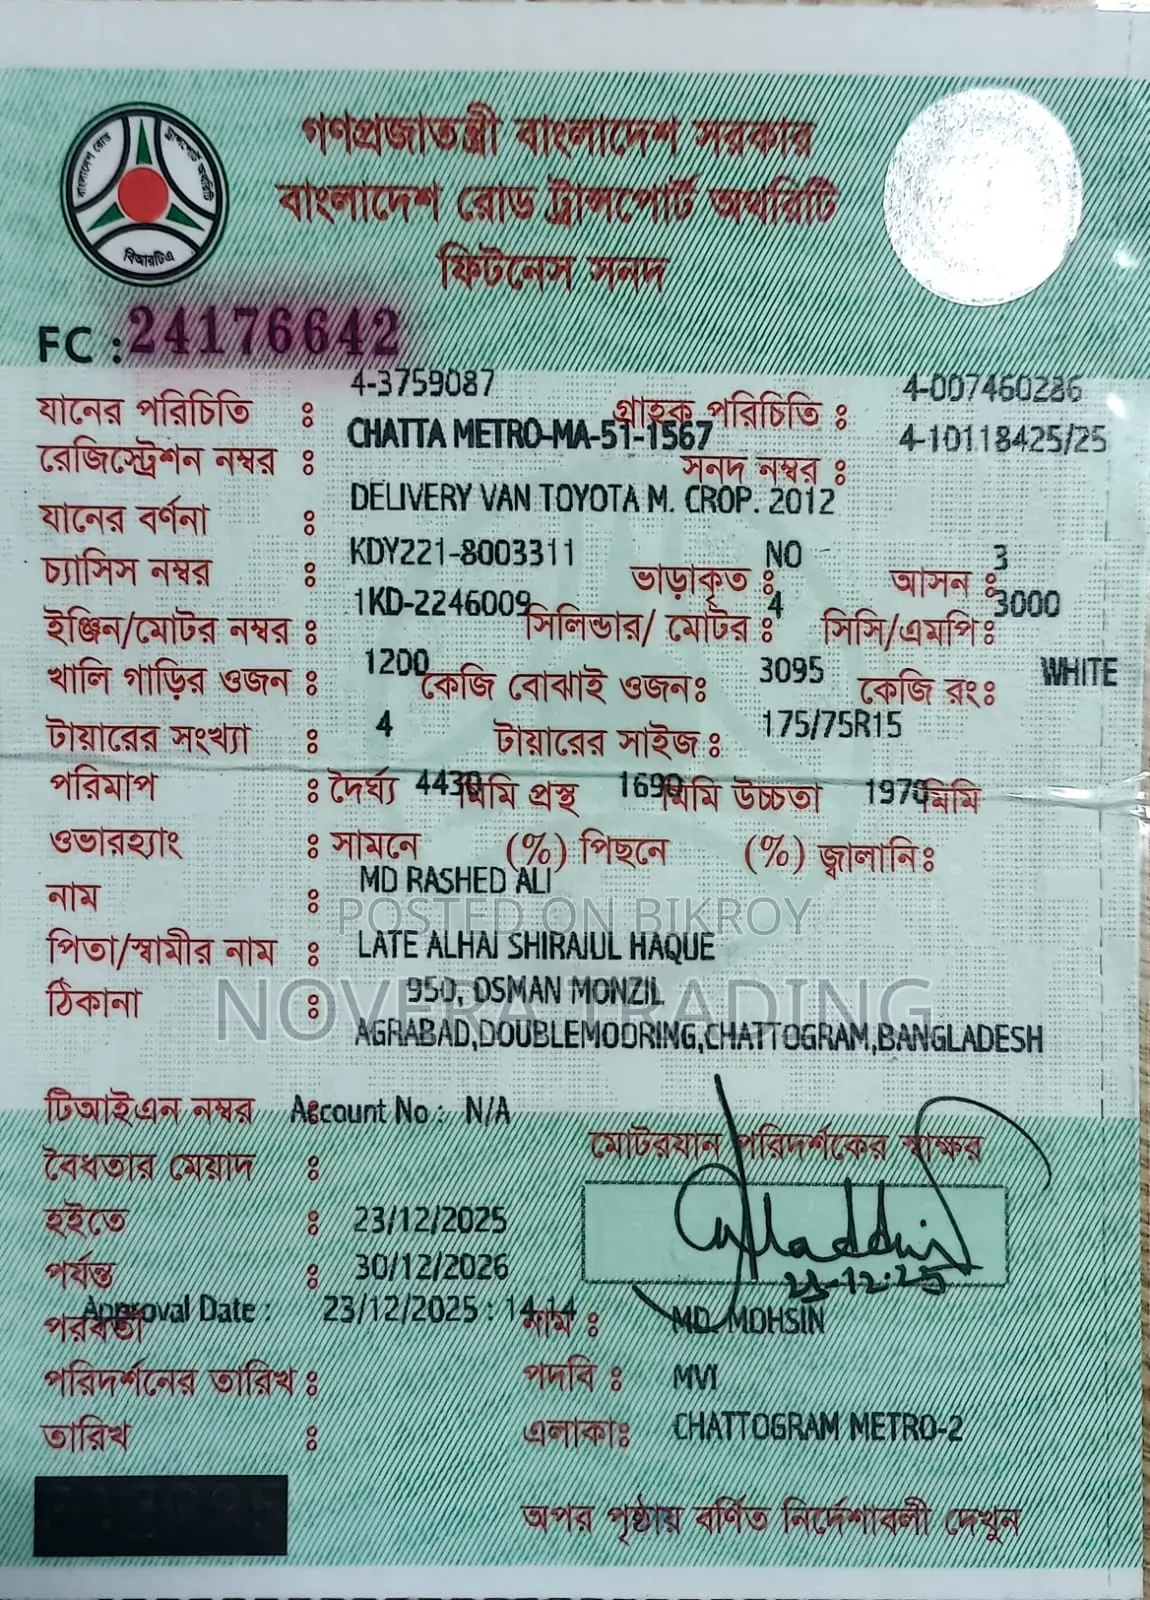 গণপ্রজাতন্ত্রী বাংলাদেশ সরকার
বাংলাদেশ রোড ট্রান্সপোর্ট অথরিটি
ফিটনেস সনদ
বাংলাদেশ রোড ট্রান্সপোর্ট অথরিটি
বিআরটিএ
FC : 24176642
যানের পরিচিতি : 4-3759087 গ্রাহক পরিচিতি : 4-007460286
রেজিস্ট্রেশন নম্বর : CHATTA METRO-MA-51-1567 সনদ নম্বর : 4-10118425/25
যানের বর্ণনা : DELIVERY VAN TOYOTA M. CROP. 2012
চ্যাসিস নম্বর : KDY221-8003311 ভাড়াকৃত : NO আসন : 3
ইঞ্জিন/মোটর নম্বর : 1KD-2246009 সিলিন্ডার/ মোটর : 4 সিসি/এমপি: 3000
খালি গাড়ির ওজন : 1200 কেজি বোঝাই ওজন: 3095 কেজি রং: WHITE
টায়ারের সংখ্যা : 4 টায়ারের সাইজ : 175/75R15
পরিমাপ : দৈর্ঘ্য 4430 মিমি প্রস্থ 1690 মিমি উচ্চতা 1970 মিমি
ওভারহ্যাং : সামনে (%) পিছনে (%) জ্বালানি:
নাম : MD RASHED ALI
POSTED ON BIKROY
পিতা/স্বামীর নাম : LATE ALHAJ SHIRAJUL HAQUE
NOVERA TRADING
ঠিকানা : 950, OSMAN MONZIL
AGRABAD,DOUBLEMOORING,CHATTOGRAM,BANGLADESH
টিআইএন নম্বর : Account No : N/A
মোটরযান পরিদর্শকের স্বাক্ষর
বৈধতার মেয়াদ :
হইতে : 23/12/2025
পর্যন্ত : 30/12/2026
23-12-25
Approval Date : 23/12/2025 : 14:14
পরবর্তী নাম : MD. MOHSIN
পরিদর্শনের তারিখ : পদবি : MVI
তারিখ : এলাকা: CHATTOGRAM METRO-2
অপর পৃষ্ঠায় বর্ণিত নির্দেশাবলী দেখুন